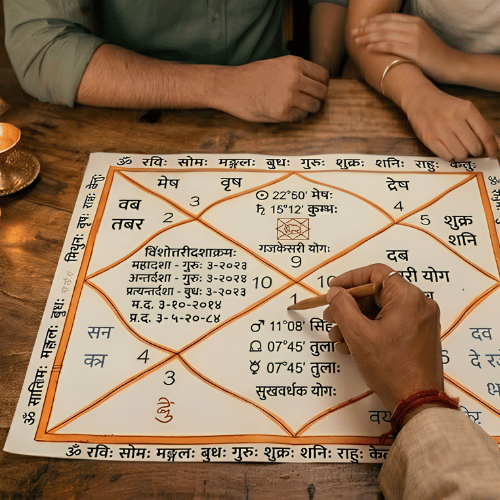 ॐ रविः सोमः मङ्गलः बुधः गुरुः शुक्रः शनिः राहुः केतुः
मेष
वृष
द्रेष
☉ 22°50' मेषः
♄ 15°12' कुम्भः
वब
तबर
2
3
4
5
शुक्र
शनि
गजकेसरी योगः
9
विंशोत्तरीदशाक्रमः
महादशा - गुरुः ३-२०२३
अन्तर्दशा - गुरुः ३-२०२४
प्रत्यन्तर्दशा - बुधः ३-२०२३
म.द. ३-१०-२०१४
प्र.द. ३-५-२०-८४
दब
री योग
10
10
1
♂ 11°08' सिंह
☊ 07°45' तुलाः
☿ 07°45' तुलाः
सुखवर्धक योगः
सन
क्र
4
3
दव
दे
ॐ रविः सोमः मङ्गलः बुधः गुरुः शुक्रः शनिः राहुः